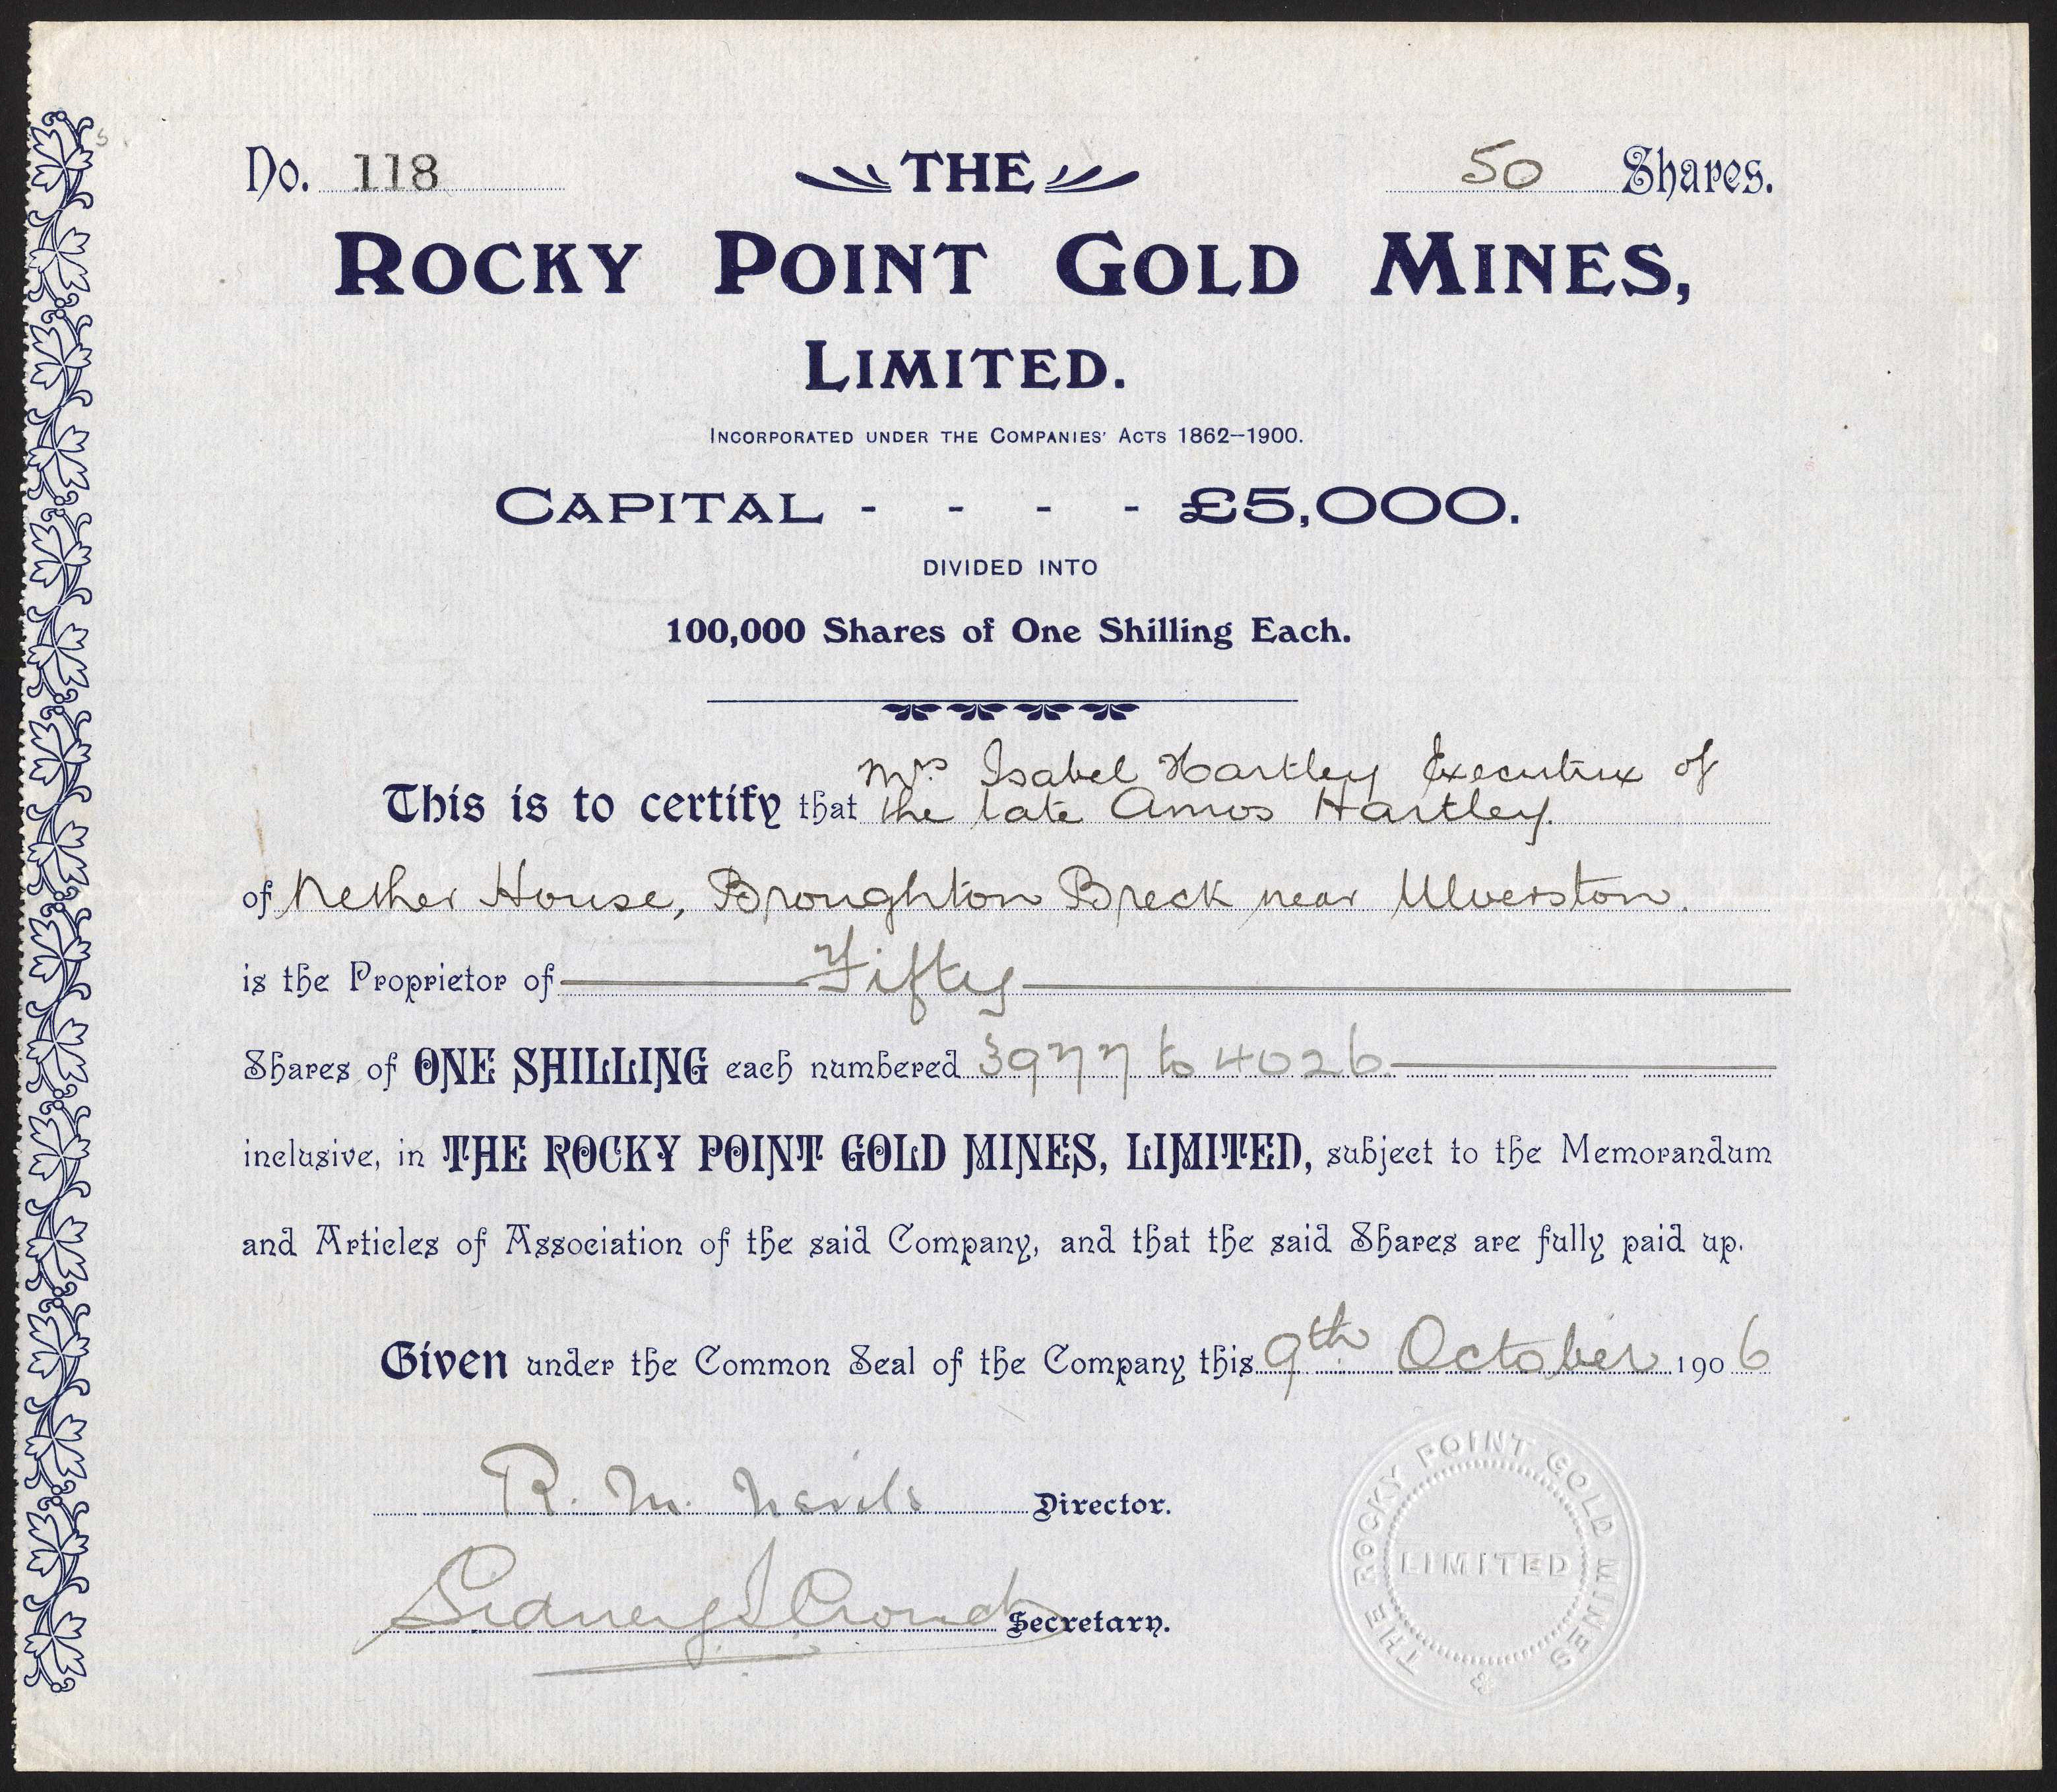 No. 118 THE 50 Shares.
ROCKY POINT GOLD MINES,
LIMITED.
INCORPORATED UNDER THE COMPANIES' ACTS 1862–1900.
CAPITAL - - - - £5,000.
DIVIDED INTO
100,000 Shares of One Shilling Each.
Mrs Isabel Hartley Executrix of
This is to certify that the late Amos Hartley.
of Nether House, Broughton Breck near Ulverston.
is the Proprietor of Fifty
Shares of ONE SHILLING each numbered 3977 to 4026
inclusive, in THE ROCKY POINT GOLD MINES, LIMITED, subject to the Memorandum
and Articles of Association of the said Company, and that the said Shares are fully paid up.
Given under the Common Seal of the Company this 9th October 1906
R. M. Director.
Sidney Secretary.
THE ROCKY POINT GOLD MINES
LIMITED